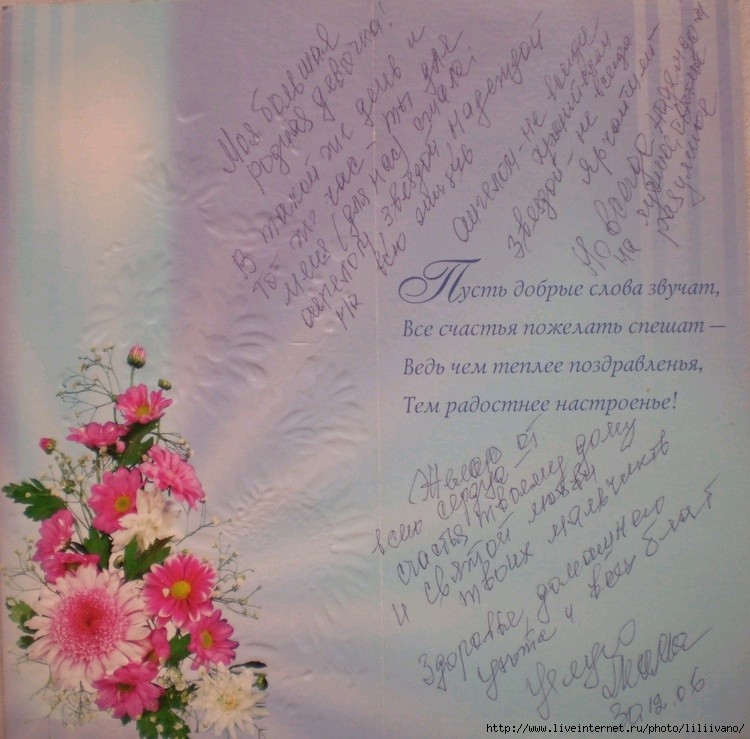 Моя большая
родная девочка!
В такой же день и
тот же час – ты для
меня (для нас) стала:
ангелом, звездой, надеждой
на всю жизнь
ангелом – не всегда
звездой – не всегда
яркой
Но всегда надеждой
на лучшее,
разумное
Пусть добрые слова звучат,
Все счастья пожелать спешат —
Ведь чем теплее поздравленья,
Тем радостнее настроенье!
Желаю от
всего сердца –
счастья твоему дому
и святой любви
твоих мальчиков
Здоровья, домашнего
уюта и всех благ
Целую
Мама
30.12.06
http://www.liveinternet.ru/photo/liliivano/